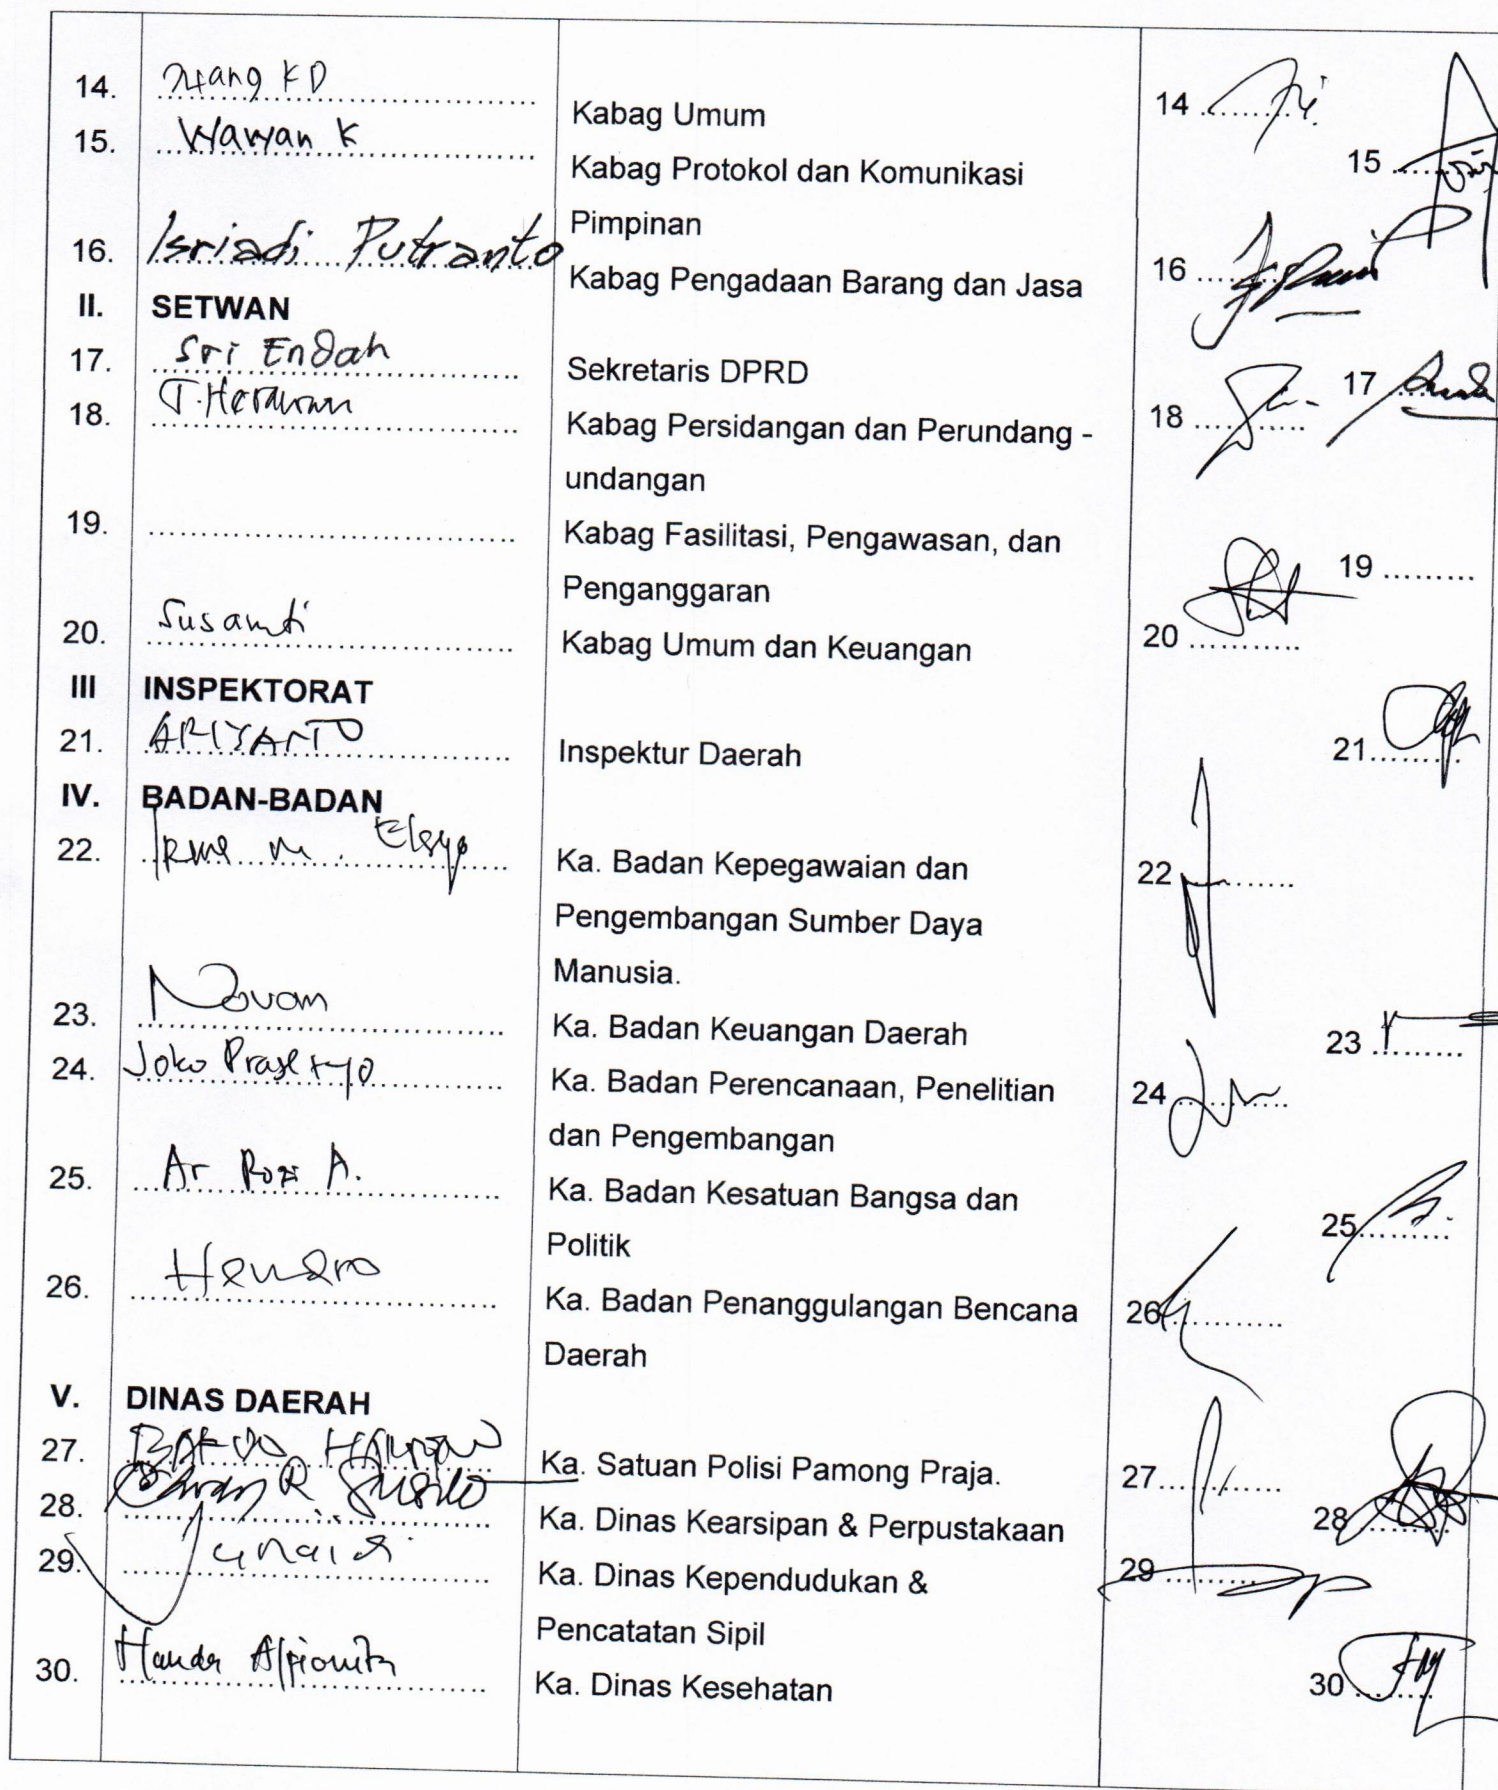 14. KD Kabag Umum 14
15. Wawan K Kabag Protokol dan Komunikasi 15
Pimpinan
16. Isriadi Putranto Kabag Pengadaan Barang dan Jasa 16
II. SETWAN
17. Sri Endah Sekretaris DPRD 17
18. T. Herawan Kabag Persidangan dan Perundang - 18
undangan
19. Kabag Fasilitasi, Pengawasan, dan 19
Penganggaran
20. Susanti Kabag Umum dan Keuangan 20
III INSPEKTORAT
21. ARIYANTO Inspektur Daerah 21
IV. BADAN-BADAN
22. Ka. Badan Kepegawaian dan 22
Pengembangan Sumber Daya
Manusia.
23. Novam Ka. Badan Keuangan Daerah 23
24. Joko Prasetyo Ka. Badan Perencanaan, Penelitian 24
dan Pengembangan
25. Ar Rozi A. Ka. Badan Kesatuan Bangsa dan 25
Politik
26. Hendro Ka. Badan Penanggulangan Bencana 26
Daerah
V. DINAS DAERAH
27. Ka. Satuan Polisi Pamong Praja. 27
28. R Susilo Ka. Dinas Kearsipan & Perpustakaan 28
29. Junaidi Ka. Dinas Kependudukan & 29
Pencatatan Sipil
30. Ka. Dinas Kesehatan 30